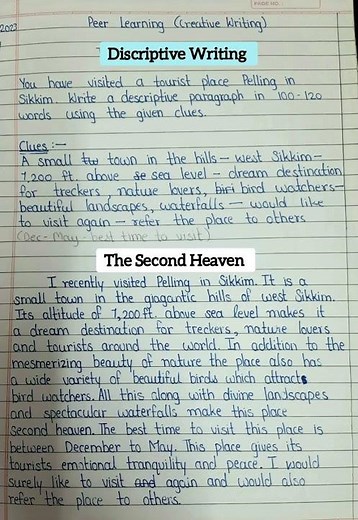 PAGE NO.:
2023
Peer Learning (Creative Writing)
Discriptive Writing
You have visited a tourist place Pelling in
Sikkim. Write a descriptive paragraph in 100-120
words using the given clues.
Clues :-
A small town in the hills - west Sikkim -
7,200 ft. above sea level - dream destination
for treckers, nature lovers, bird watchers -
beautiful landscapes, waterfalls - would like
to visit again - refer the place to others
(Dec-May-best time to visit)
The Second Heaven
I recently visited Pelling in Sikkim. It is a
small town in the giogantic hills of west Sikkim.
Its altitude of 7,200 ft. above sea level makes it
a dream destination for treckers, nature lovers
and tourists around the world. In addition to the
mesmerizing beauty of nature the place also has
a wide variety of beautiful birds which attracts
bird watchers. All this along with divine landscapes
and spectacular waterfalls make this place
second heaven. The best time to visit this place is
between December to May. This place gives its
tourists emotional tranquility and peace. I would
surely like to visit again and would also
refer the place to others.